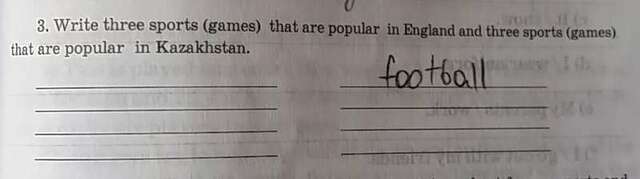 3. Write three sports (games) that are popular in England and three sports (games)
that are popular in Kazakhstan.
football